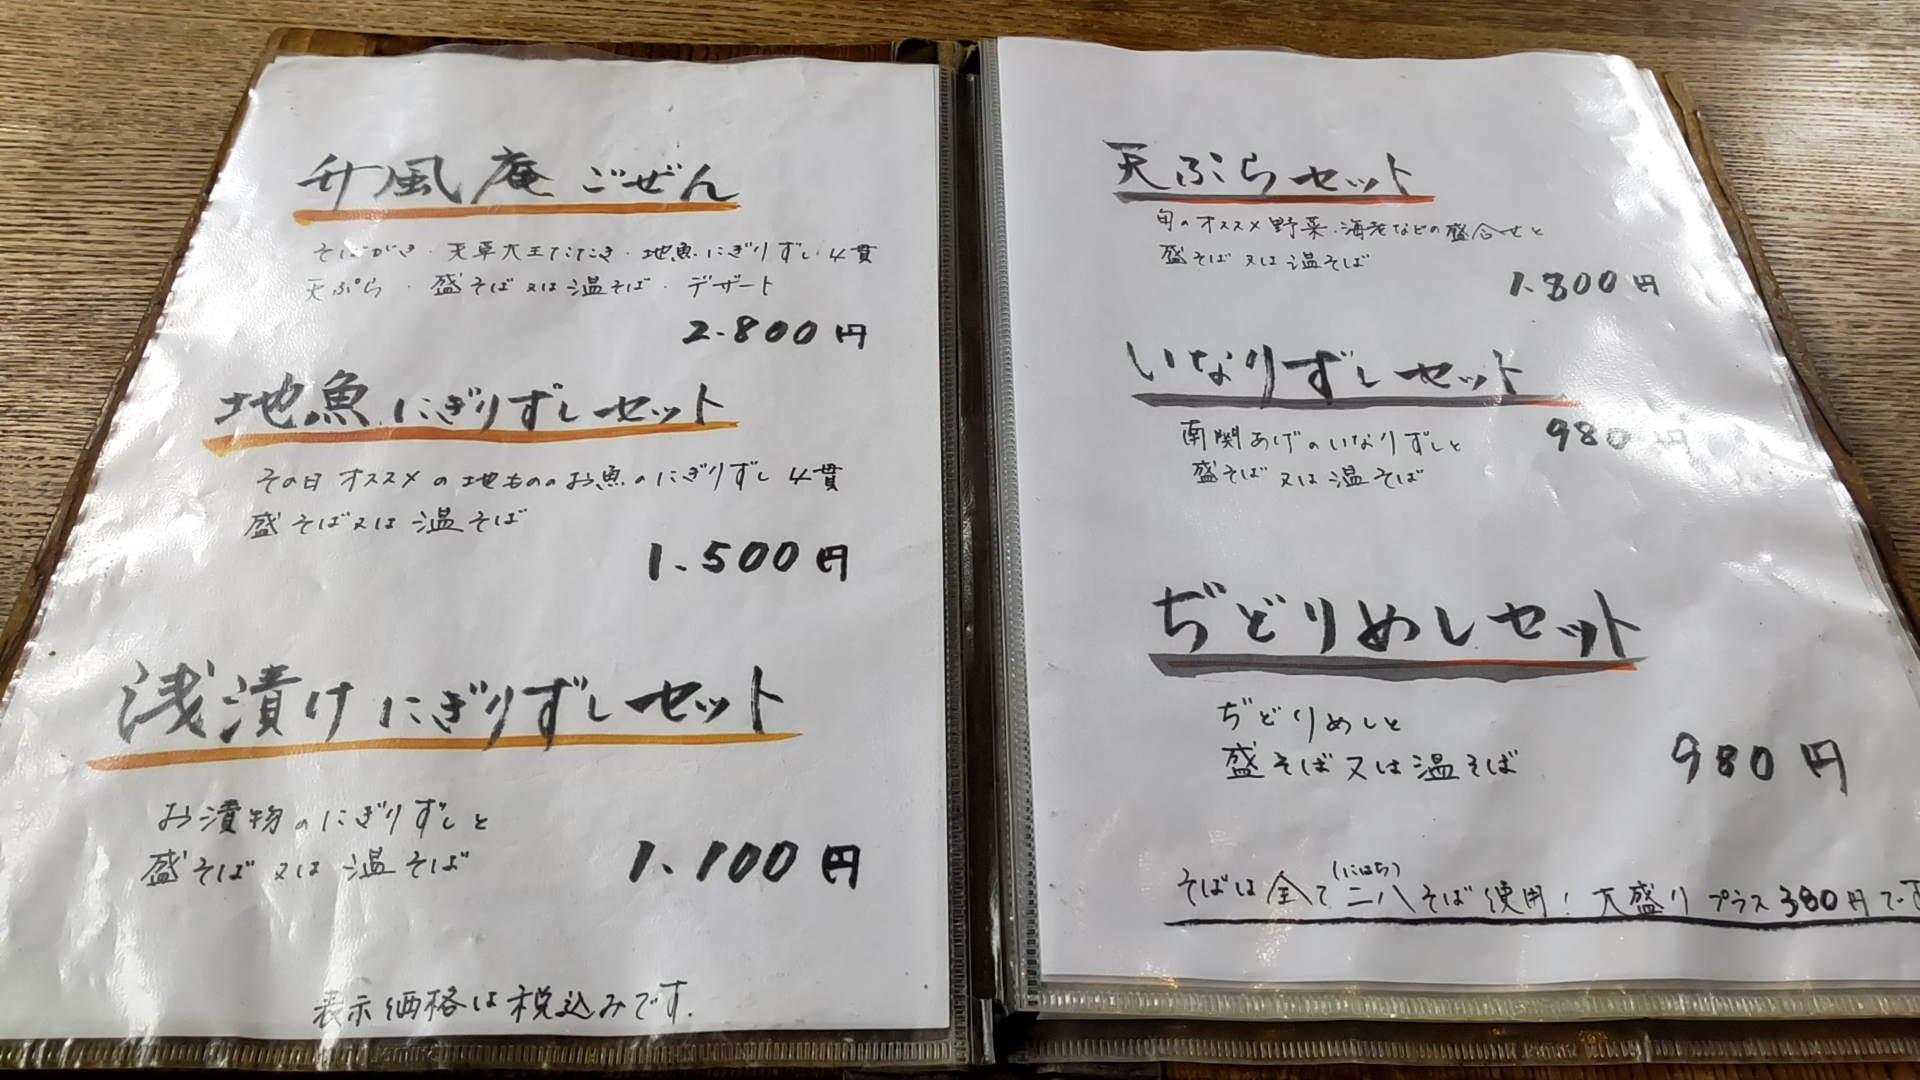 升風庵ごぜん
そばがき・天草大王たたき・地魚にぎりずし4貫
天ぷら・盛そば又は温そば・デザート
2.800円
地魚にぎりずしセット
その日オススメの地もののお魚のにぎりずし4貫
盛そば又は温そば
1.500円
浅漬けにぎりずしセット
お漬物のにぎりずしと
盛そば又は温そば
1.100円
表示価格は税込みです.
天ぷらセット
旬のオススメ野菜・海老などの盛合せと
盛そば又は温そば
1.800円
いなりずしセット
南関あげのいなりずしと
980円
盛そば又は温そば
ぢどりめしセット
ぢどりめしと
盛そば又は温そば
980円
(にはち)
そばは全て二八そば使用! 大盛りプラス380円です